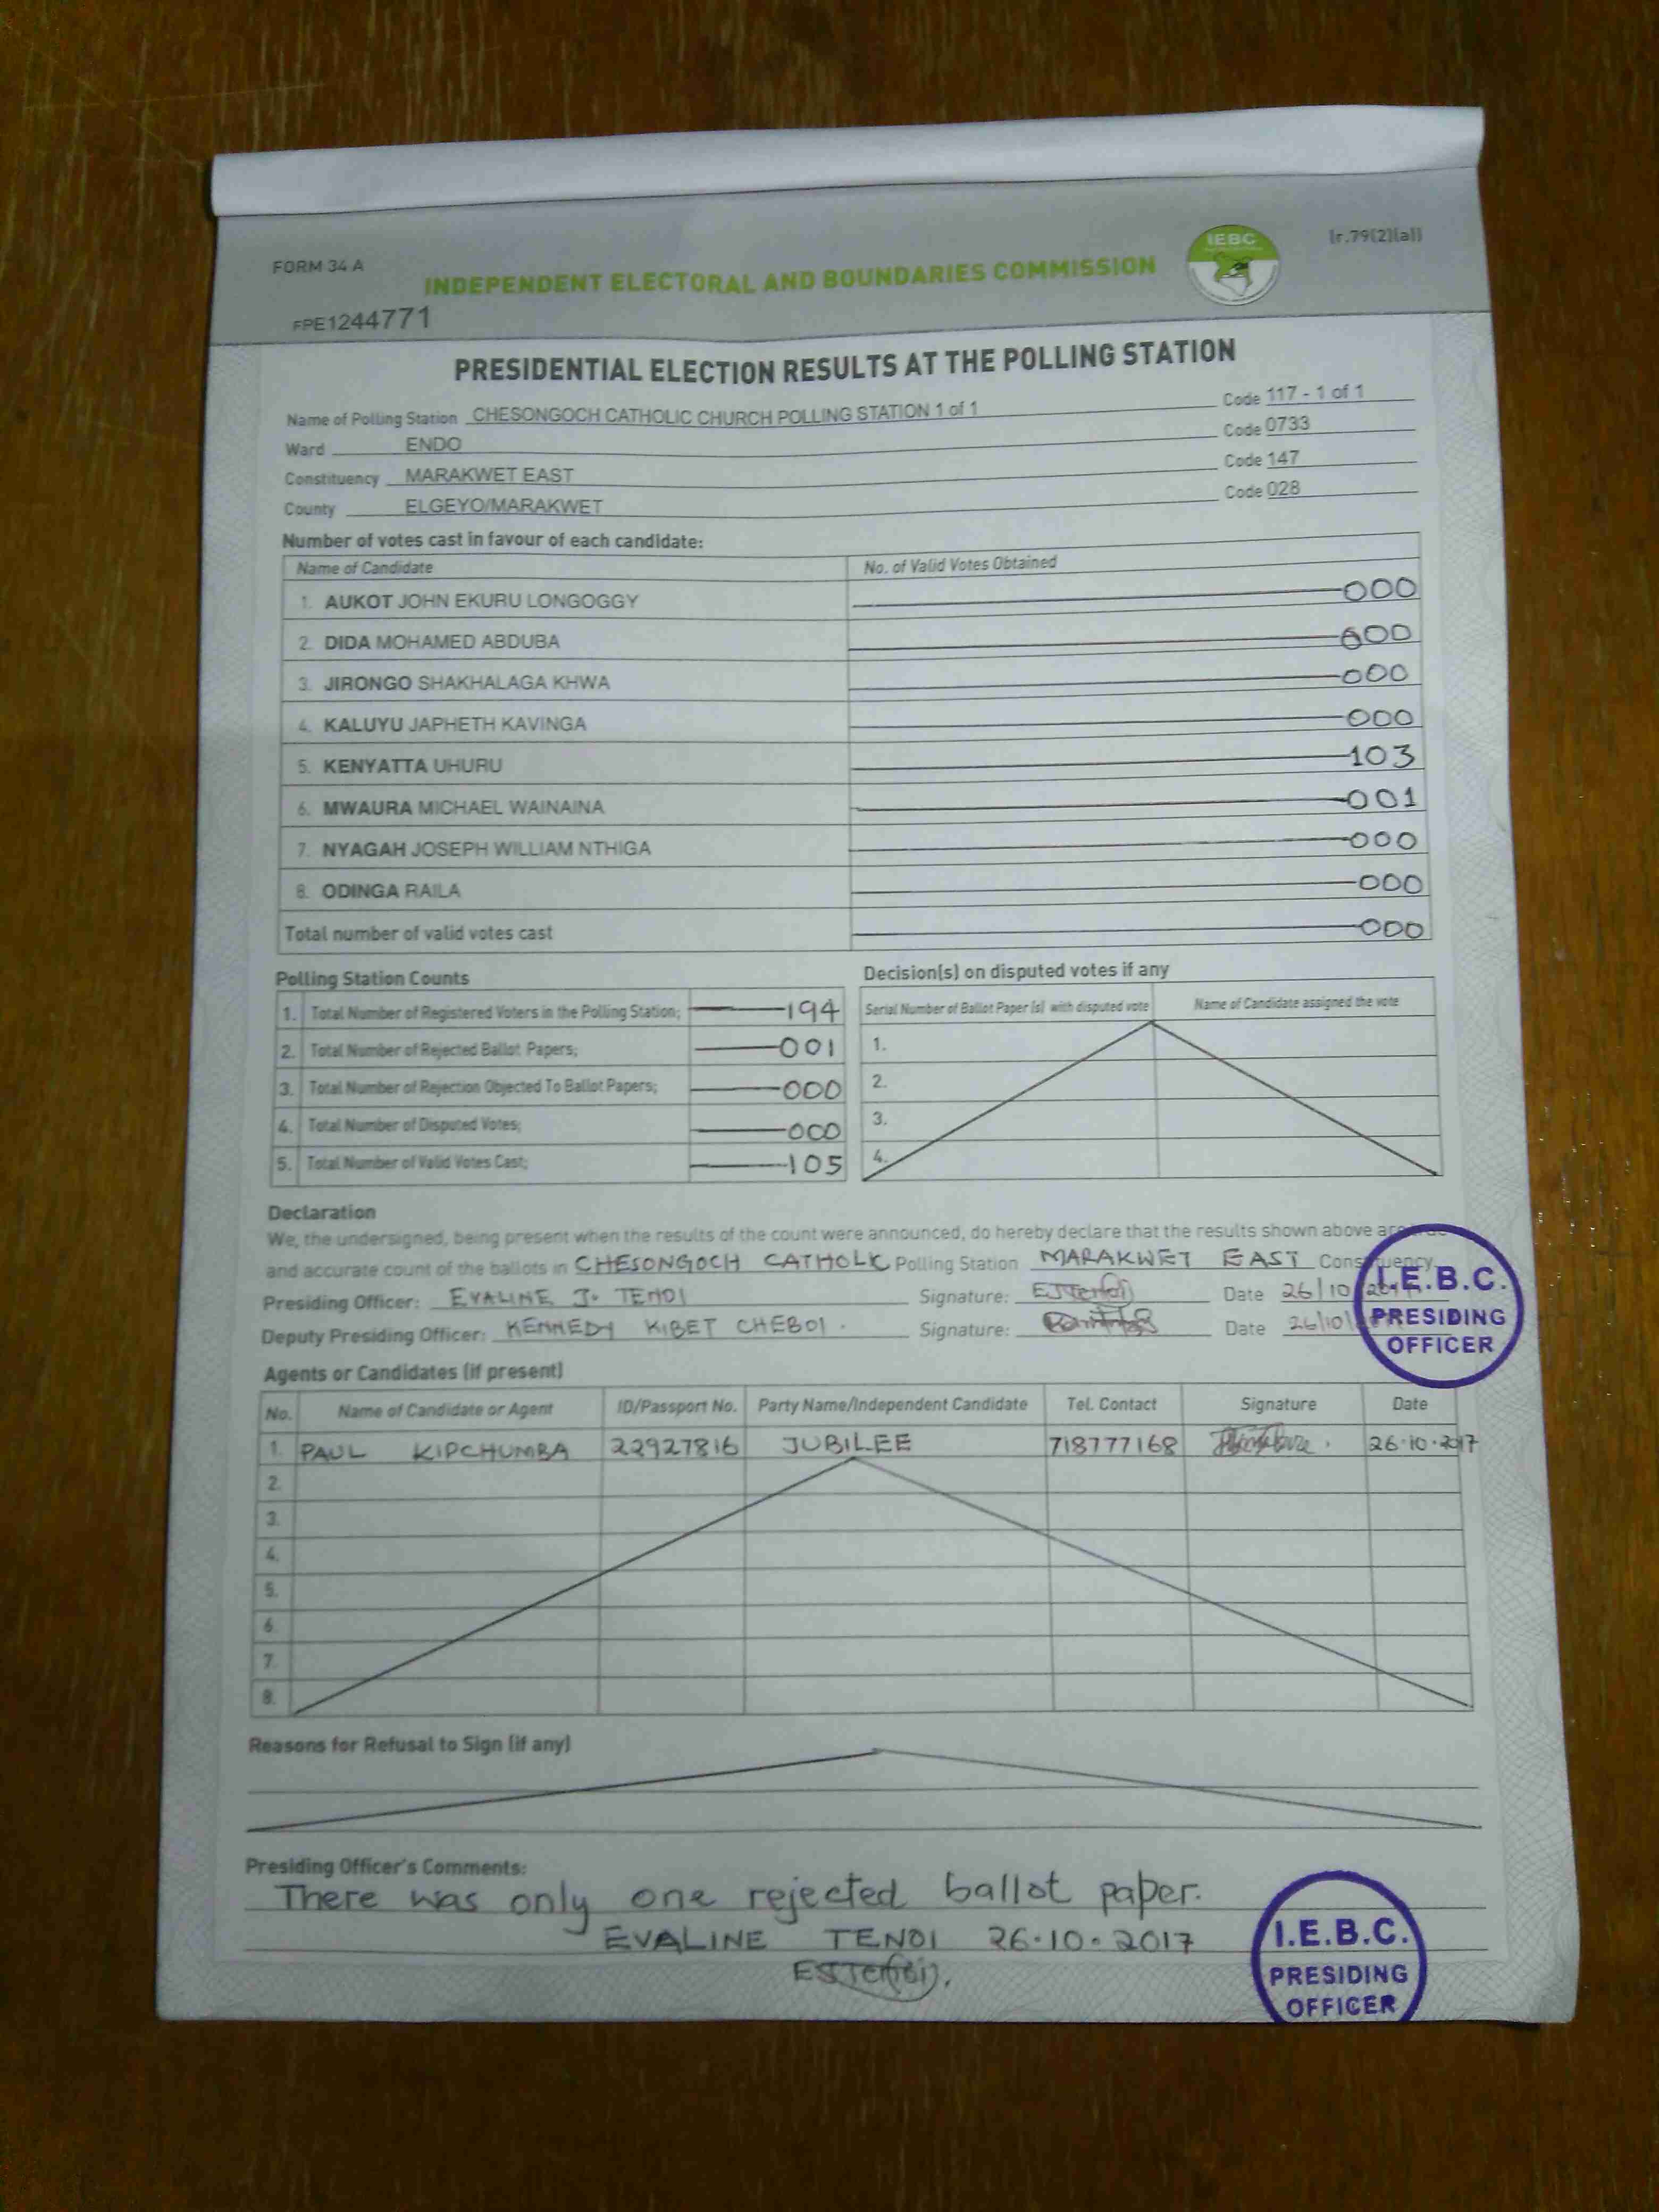 FORM 34 A
(r.79(2)(a))
IEBC
INDEPENDENT ELECTORAL AND BOUNDARIES COMMISSION
FPE1244771
PRESIDENTIAL ELECTION RESULTS AT THE POLLING STATION
Name of Polling Station CHESONGOCH CATHOLIC CHURCH POLLING STATION 1 of 1 Code 117 - 1 of 1
Ward ENDO Code 0733
Constituency MARAKWET EAST Code 147
County ELGEYO/MARAKWET Code 028
Number of votes cast in favour of each candidate:
Name of Candidate No. of Valid Votes Obtained
1. AUKOT JOHN EKURU LONGOGGY 000
2. DIDA MOHAMED ABDUBA 000
3. JIRONGO SHAKHALAGA KHWA 000
4. KALUYU JAPHETH KAVINGA 000
5. KENYATTA UHURU 103
6. MWAURA MICHAEL WAINAINA 001
7. NYAGAH JOSEPH WILLIAM NTHIGA 000
8. ODINGA RAILA 000
Total number of valid votes cast 000
Polling Station Counts
1. Total Number of Registered Voters in the Polling Station; 194
2. Total Number of Rejected Ballot Papers; 001
3. Total Number of Rejection Objected To Ballot Papers; 000
4. Total Number of Disputed Votes; 000
5. Total Number of Valid Votes Cast; 105
Decision(s) on disputed votes if any
Serial Number of Ballot Paper (s) with disputed vote Name of Candidate assigned the vote
1.
2.
3.
4.
Declaration
We, the undersigned, being present when the results of the count were announced, do hereby declare that the results shown above are
and accurate count of the ballots in CHESONGOCH CATHOLIC Polling Station MARAKWET EAST Constituency.
Presiding Officer: EVALINE J. TENOI Signature: Date 26/10
Deputy Presiding Officer: KENNEDY KIBET CHEBOI. Signature: Date 26/10
I.E.B.C.
PRESIDING
OFFICER
Agents or Candidates (if present)
No. Name of Candidate or Agent ID/Passport No. Party Name/Independent Candidate Tel. Contact Signature Date
1. PAUL KIPCHUMBA 22927816 JUBILEE 718777168 26.10.2017
2.
3.
4.
5.
6.
7.
8.
Reasons for Refusal to Sign (if any)
Presiding Officer's Comments:
There was only one rejected ballot paper.
EVALINE TENOI 26.10.2017
I.E.B.C.
PRESIDING
OFFICER